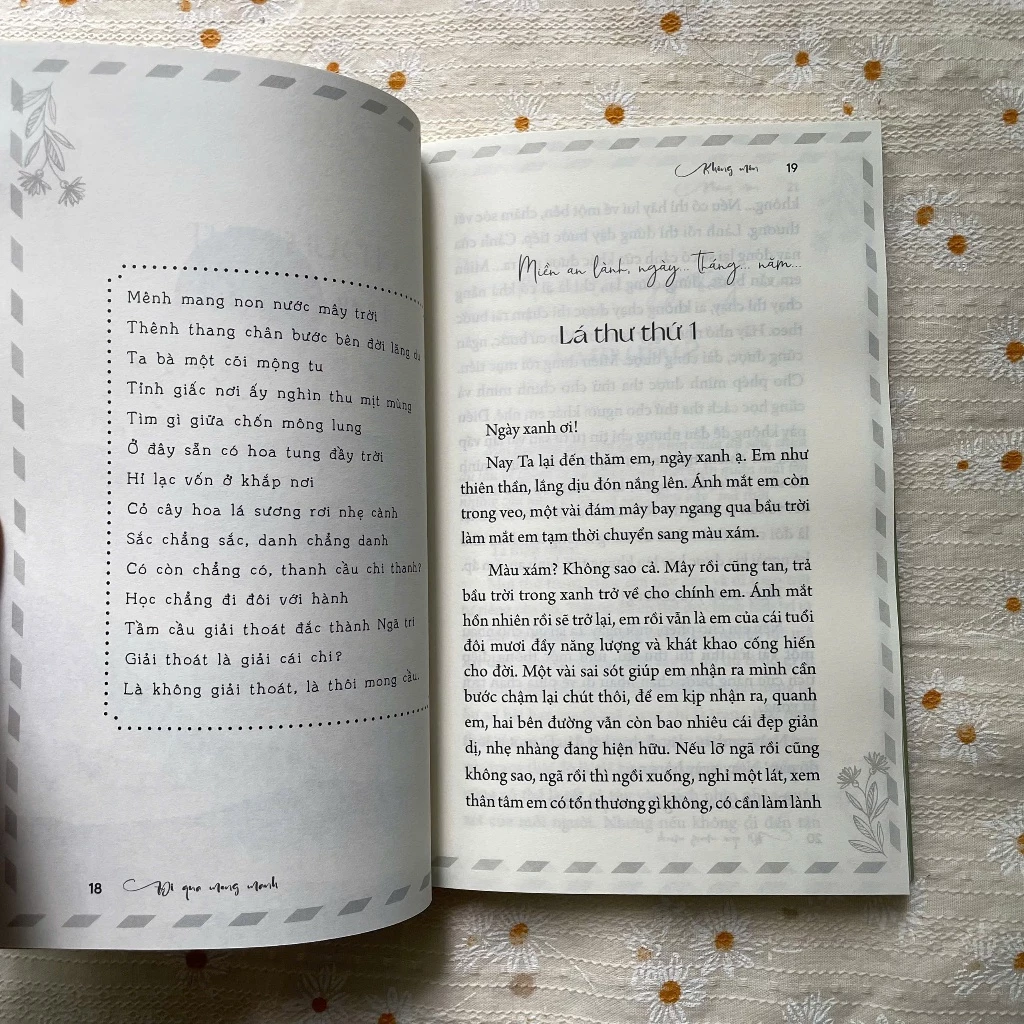 Mênh mang non nước mây trời
Thênh thang chân bước bên đời lãng du
Ta bà một cõi mộng tu
Tỉnh giấc nơi ấy nghìn thu mịt mùng
Tìm gì giữa chốn mông lung
Ở đây sẵn có hoa tung đầy trời
Hỉ lạc vốn ở khắp nơi
Cỏ cây hoa lá sương rơi nhẹ cành
Sắc chẳng sắc, danh chẳng danh
Có còn chẳng có, thanh cầu chi thanh?
Học chẳng đi đôi với hành
Tầm cầu giải thoát đắc thành Ngã tri
Giải thoát là giải cái chi?
Là không giải thoát, là thôi mong cầu.
18 Đi qua mong manh
19
Miền an lành, ngày... tháng... năm...
Lá thư thứ 1
Ngày xanh ơi!
Nay Ta lại đến thăm em, ngày xanh ạ. Em như
thiên thần, lắng dịu đón nắng lên. Ánh mắt em còn
trong veo, một vài đám mây bay ngang qua bầu trời
làm mắt em tạm thời chuyển sang màu xám.
Màu xám? Không sao cả. Mây rồi cũng tan, trả
bầu trời trong xanh trở về cho chính em. Ánh mắt
hồn nhiên rồi sẽ trở lại, em rồi vẫn là em của cái tuổi
đôi mươi đầy năng lượng và khát khao cống hiến
cho đời. Một vài sai sót giúp em nhận ra mình cần
bước chậm lại chút thôi, để em kịp nhận ra, quanh
em, hai bên đường vẫn còn bao nhiêu cái đẹp giản
dị, nhẹ nhàng đang hiện hữu. Nếu lỡ ngã rồi cũng
không sao, ngã rồi thì ngồi xuống, nghỉ một lát, xem
thân tâm em có tổn thương gì không, có cần làm lành